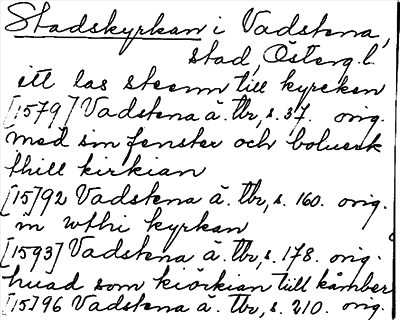 Stadskyrkan i Vadstena,
stad, Österg.l.
itt las steenn till kyrcken
[1579] Vadstena ä. tbr, s. 37. orig.
med sin fenster och boluerk
thill kirkian
[15]92 Vadstena ä. tbr, s. 160. orig.
in wthi kyrkan
[1593] Vadstena ä. tbr, s. 178. orig.
huad som kiörkian till kåmber
[15]96 Vadstena ä. tbr, s. 210. orig.